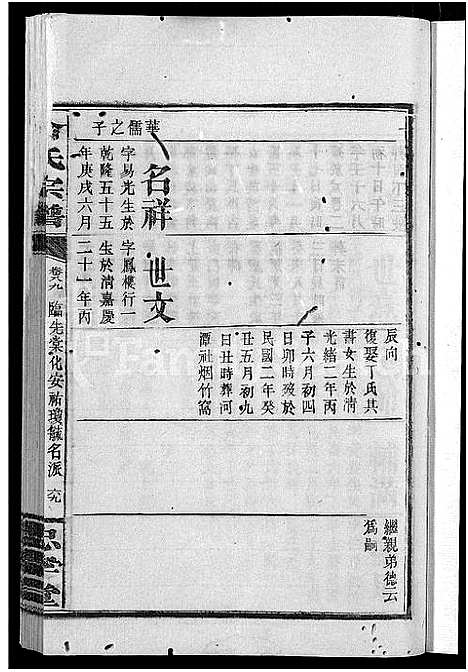 華儒之子
名祥
字易光生於
乾隆五十五
年庚戌六月
世文
字鳳樓行一
生於清嘉慶
二十一年丙
辰向
復娶丁氏其
書女生於清
光緒二年丙
子六月初四
日卯時歿於
民國二年癸
丑五月初九
日丑時葬河
潭社烟竹窩
繼親弟德云
爲嗣
氏宗譜
卷九 臨先棠化安祐瓊毓名派 六九
堂